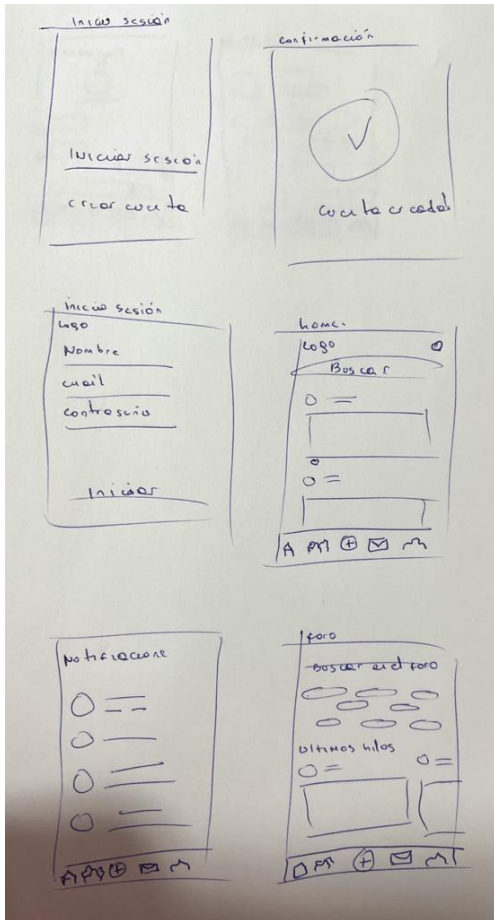 Inicio sesión
Iniciar sesión
crear cuenta
confirmación
cuenta creada!
inicio sesión
Logo
Nombre
email
contraseña
Iniciar
home.
Logo
Buscar
Notificacione
foro
Buscar en el foro
Ultimos hilos